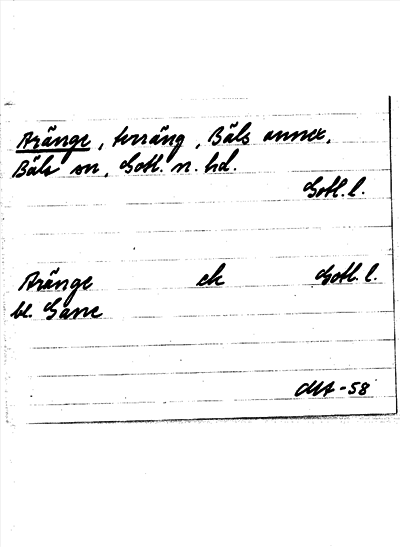 Aränge, terräng, Bäls annex,
Bäls sn, Gotl. n. hd.
Gotl. l.
Aränge ek Gotl. l.
bl. Gane
MA -58